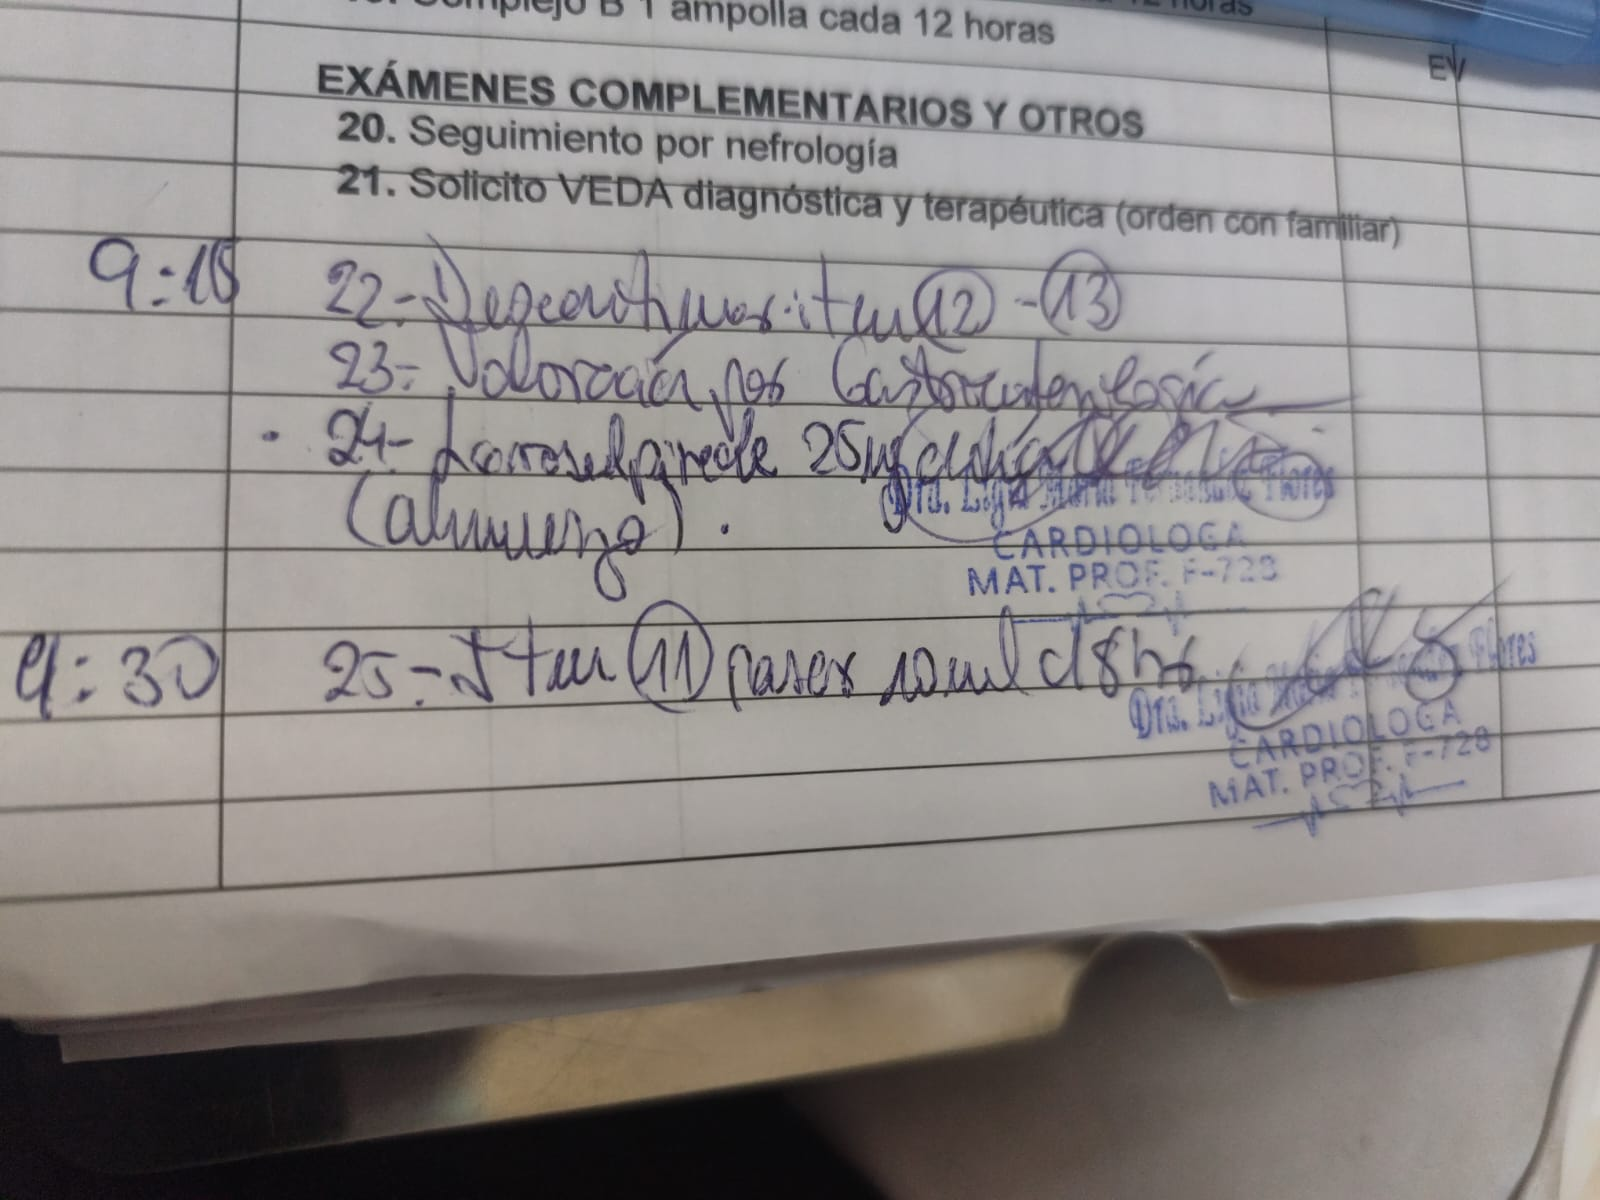 Complejo B 1 ampolla cada 12 horas
EV
EXÁMENES COMPLEMENTARIOS Y OTROS
20. Seguimiento por nefrología
21. Solicito VEDA diagnóstica y terapéutica (orden con familiar)
9:15 22-. item 12 - 13
23-. Valoración por Gastroenterología
24- 25mg
(almuerzo).
CARDIOLOGA
MAT. PROF. F-728
9:30 25-. Item 11 pasar 10 ml c/8hrs
Dra. Flores
CARDIOLOGA
MAT. PROF. F-728